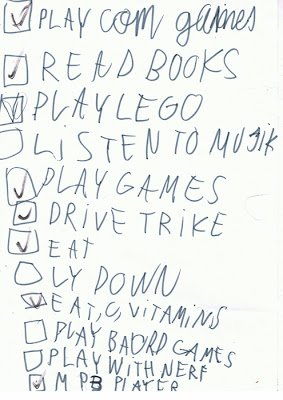 PLAY COM games
READ BOOKS
PLAY LEGO
LiSTEN TO MUSIK
PLAY GAMES
DRIVE TRIKE
EAT
LY DOWN
EAT, C, VITAMINS
PLAY BAORD GAMES
PLAY WITH NERF
MP3 PLAYER